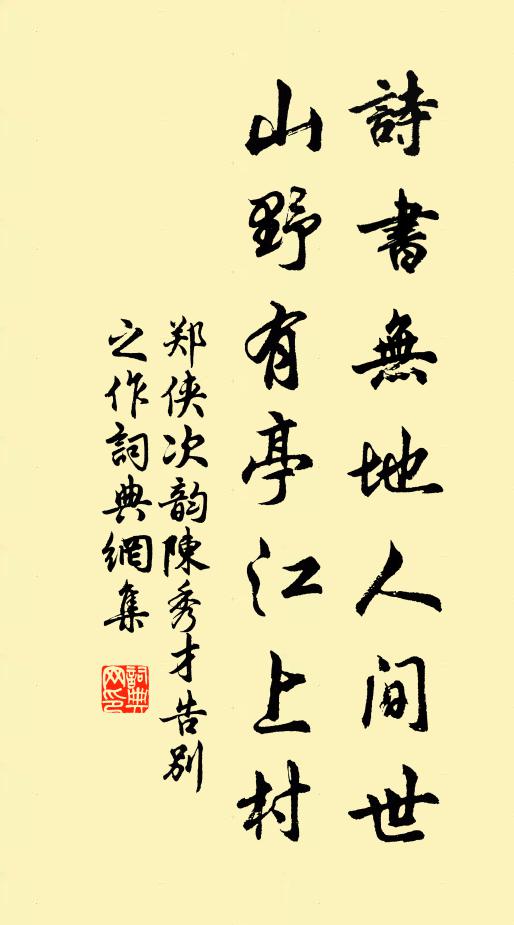 詩書無地人间世
山野有亭江上村
郑侠次韵陳秀才告别
之作詞典網集
詞典
网印